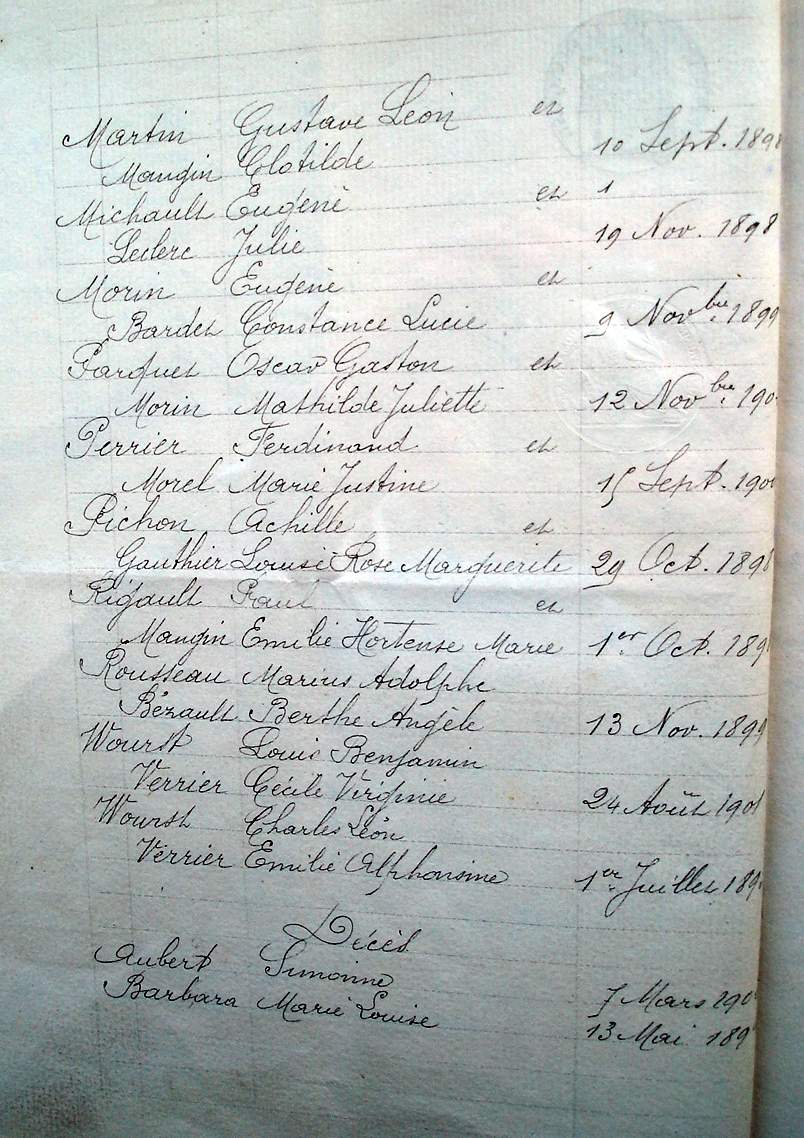 Martin Gustave Léon et
Mangin Clotilde 10 Sept. 1898
Michault Eugène et 1
Leclerc Julie 19 Nov. 1898
Morin Eugène et
Bardet Constance Lucie 9 Novbre 1899
Parquet Oscar Gaston et
Morin Mathilde Juliette 12 Novbre
Perrier Ferdinand et
Morel Marie Justine 15 Sept.
Pichon Achille et
Gauthier Louise Rose Marguerite 29 Oct.
Rigault Paul et
Mangin Emilie Hortense Marie 1er Oct.
Rousseau Marius Adolphe
Bézault Berthe Angèle 13 Nov. 1899
Wourst Louis Benjamin
Verrier Cécile Virginie 24 Août 1901
Wourst Charles Léon
Verrier Emilie Alphonsine 1er Juillet
Décès
Aubert Simonne 7 Mars
Barbara Marie Louise 13 Mai